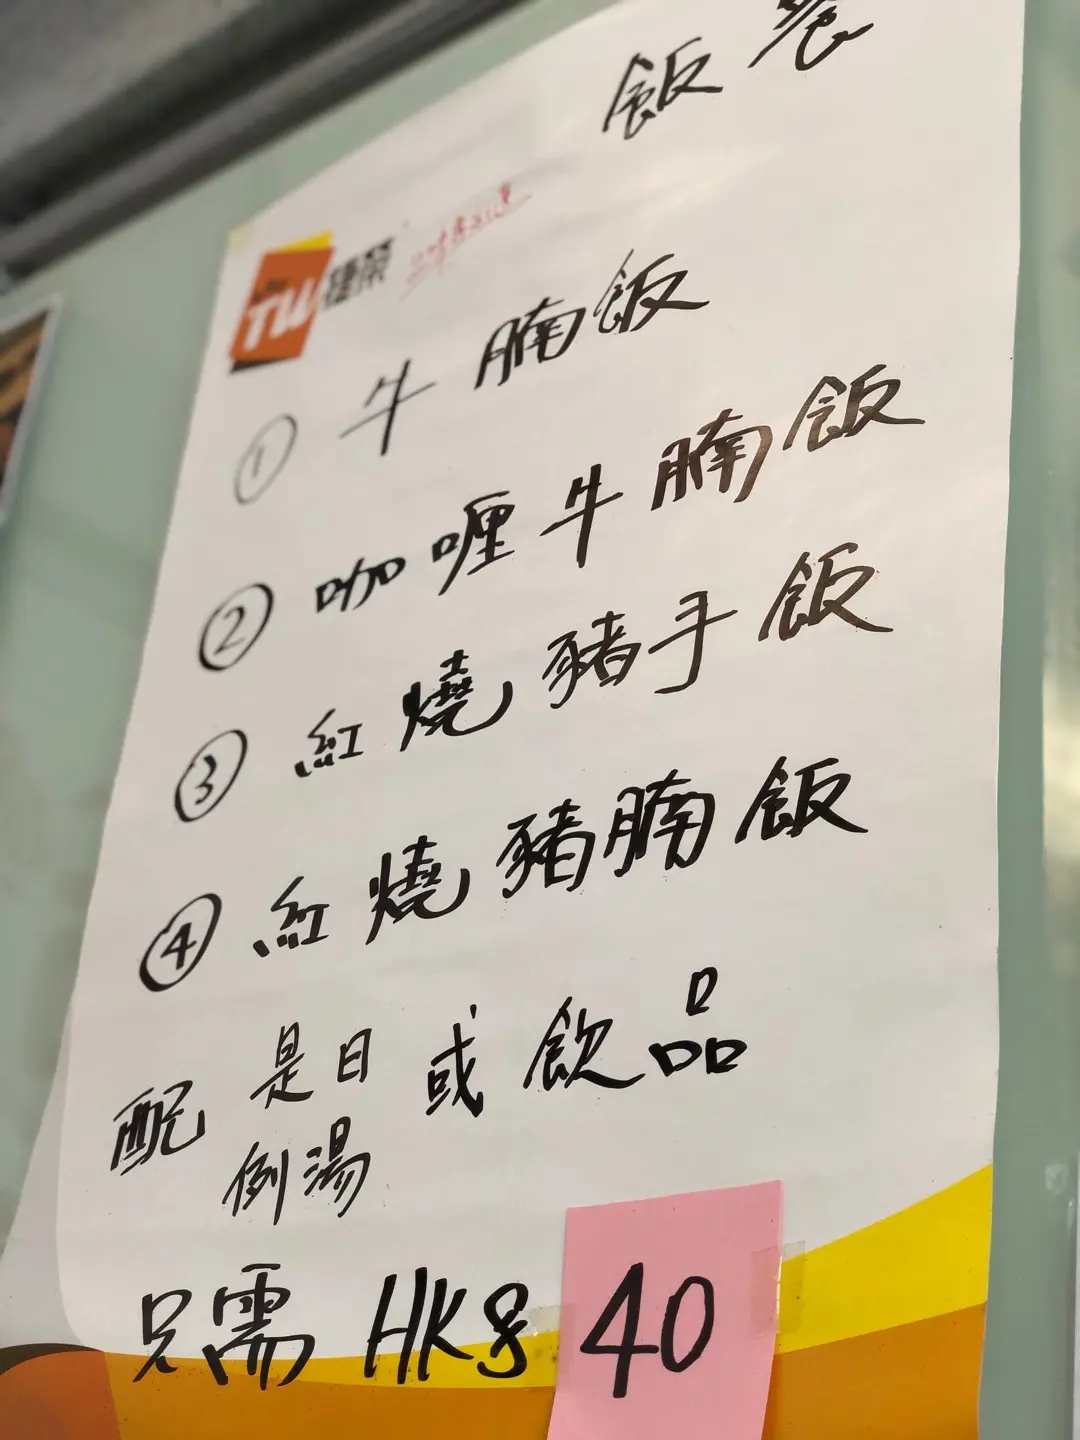 飯餐
TW 捷榮
① 牛腩飯
② 咖喱牛腩飯
③ 紅燒豬手飯
④ 紅燒豬腩飯
配 是日例湯 或 飲品
只需 HK$ 40